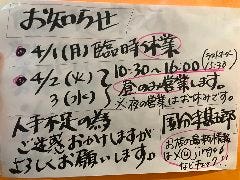 お知らせ
4/1(月)臨時休業
4/2(火) 10:30~16:00 (ラストオーダー15:30)
3(水) 昼のみ営業します。
※夜の営業はお休みです。
人手不足の為
ご迷惑おかけしますが
よろしくお願いします。
お店の最新情報